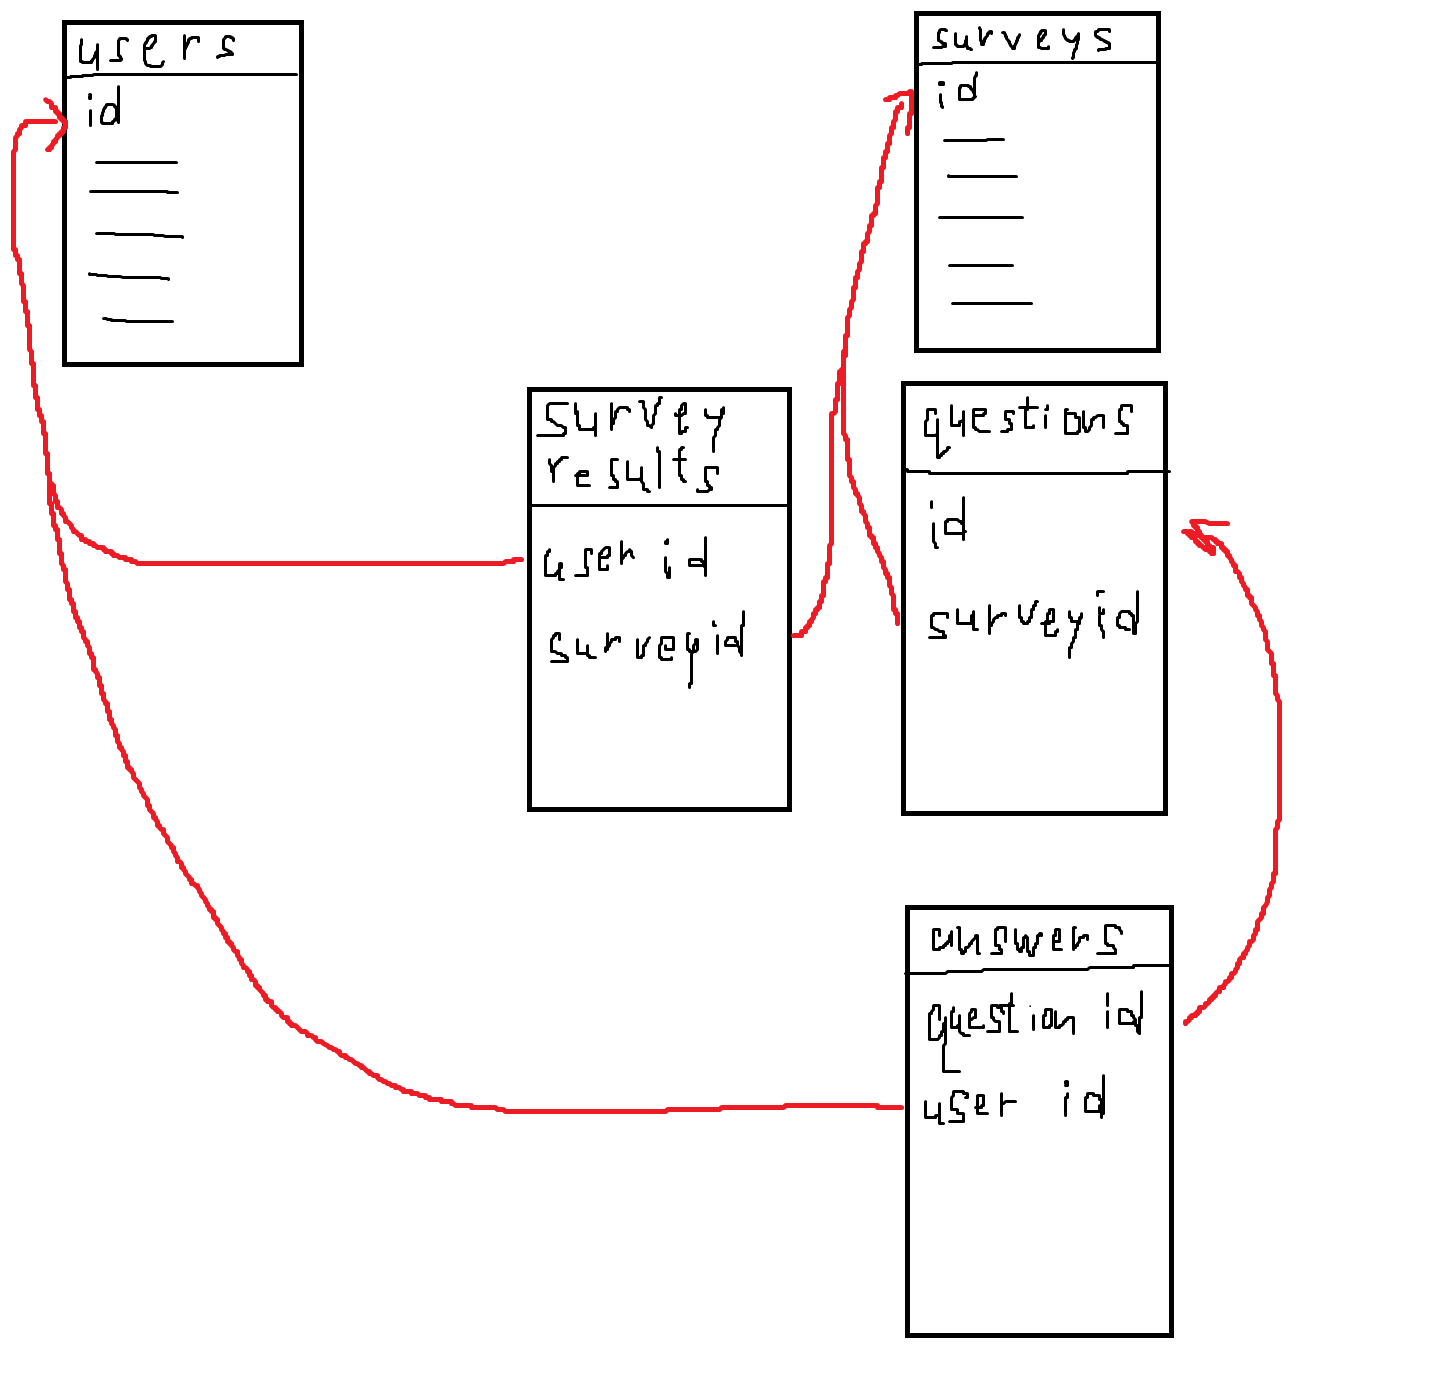 users
id
surveys
id
survey
results
user id
surveyid
questions
id
surveyid
answers
question id
user id